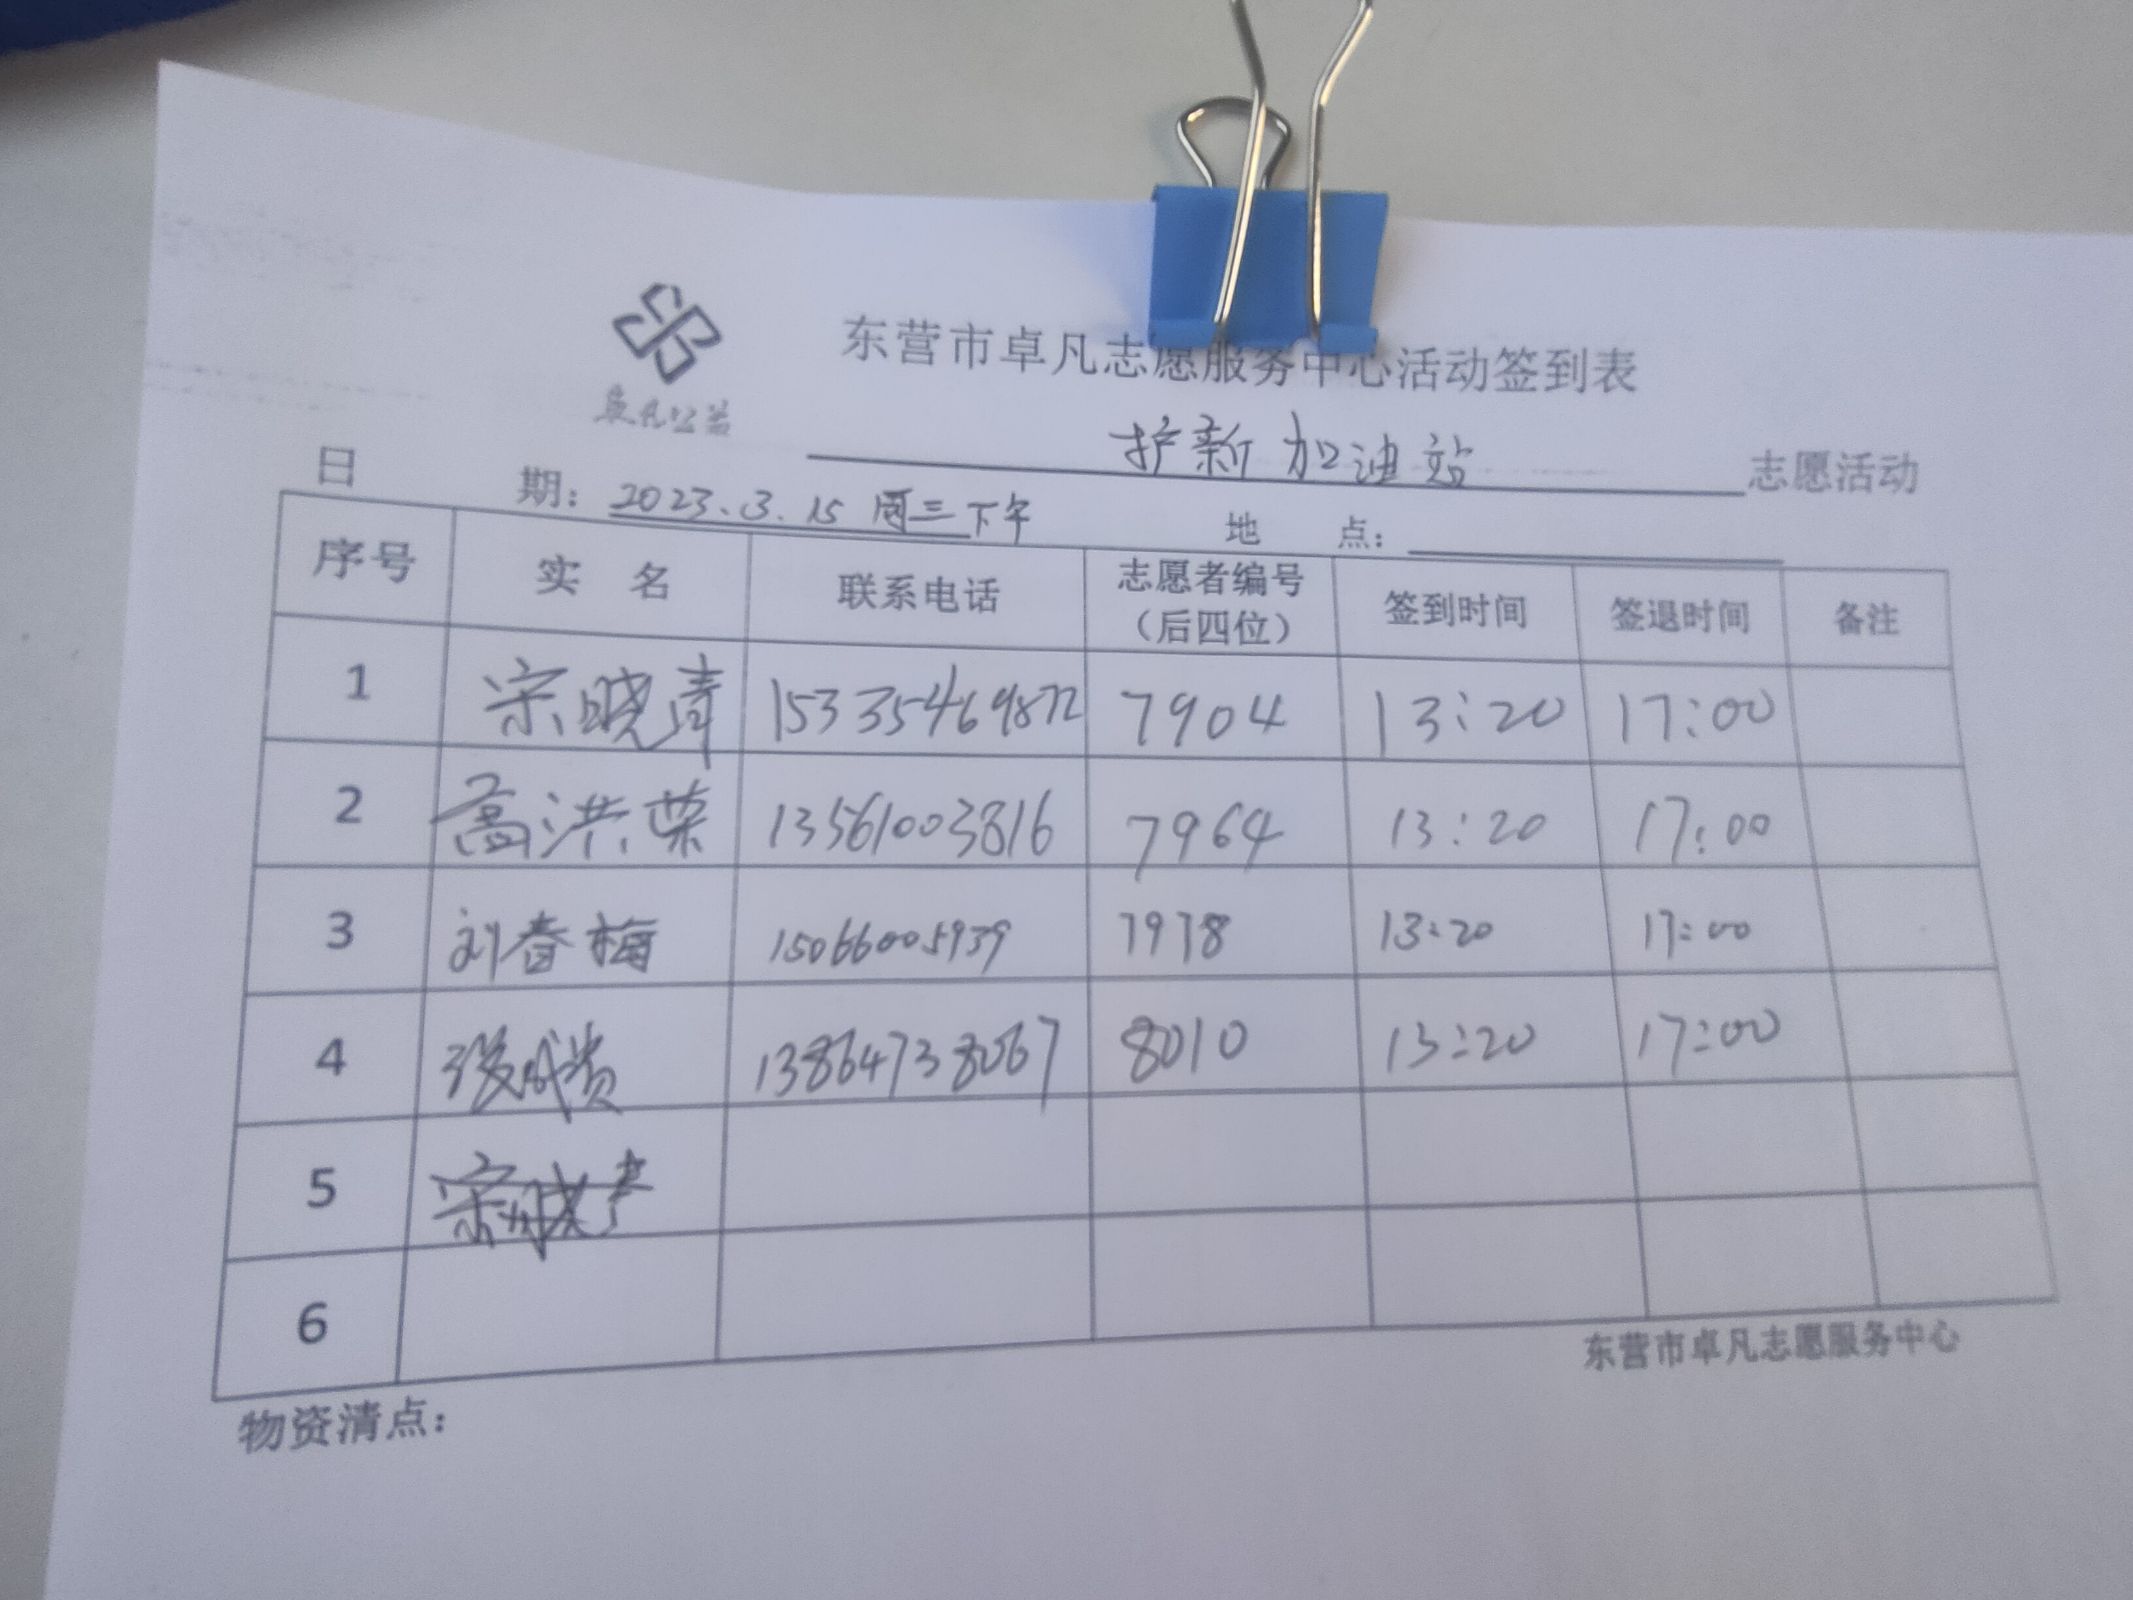 东营市卓凡志愿服务中心活动签到表
卓凡公益
护新加油站 志愿活动
日 期: 2023.3.15 周三下午 地 点:
序号 实 名 联系电话 志愿者编号（后四位） 签到时间 签退时间 备注
1 宋晓青 15335469872 7904 13:20 17:00
2 高洪荣 13561003816 7964 13:20 17:00
3 刘春梅 15066005939 7978 13:20 17:00
4 13864738067 8010 13:20 17:00
5
6
东营市卓凡志愿服务中心
物资清点: